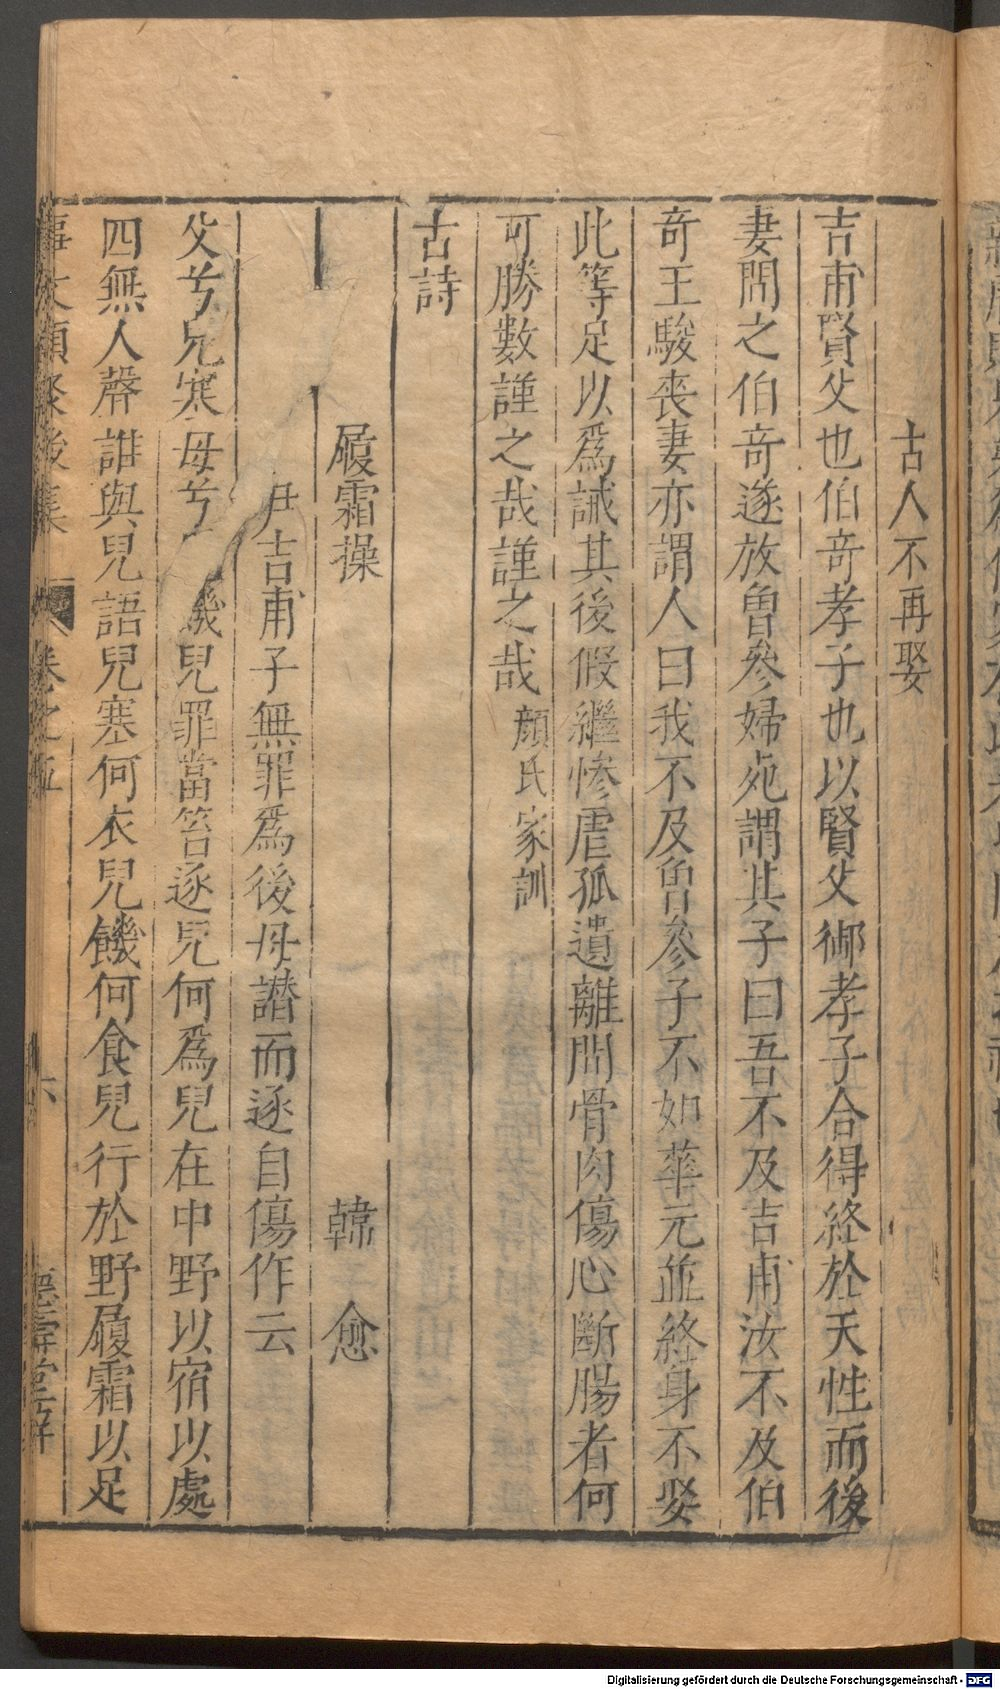 古人不再娶
吉甫賢父也伯奇孝子也以賢父御孝子合得終於天性而後
妻間之伯奇遂放曾參婦死謂其子曰吾不及吉甫汝不及伯
奇王駿喪妻亦謂人曰我不及曾參子不如華元並終身不娶
此等足以爲誡其後假繼慘虐孤遺離間骨肉傷心斷腸者何
可勝數謹之哉謹之哉顏氏家訓
古詩
履霜操 韓愈
尹吉甫子無罪爲後母譖而逐自傷作云
父兮兒寒母兮兒饑兒罪當笞逐兒何爲兒在中野以宿以處
四無人聲誰與兒語兒寒何衣兒饑何食兒行於野履霜以足
事文類聚後集 卷之五 六 德壽堂梓
Digitalisierung gefördert durch die Deutsche Forschungsgemeinschaft - DFG